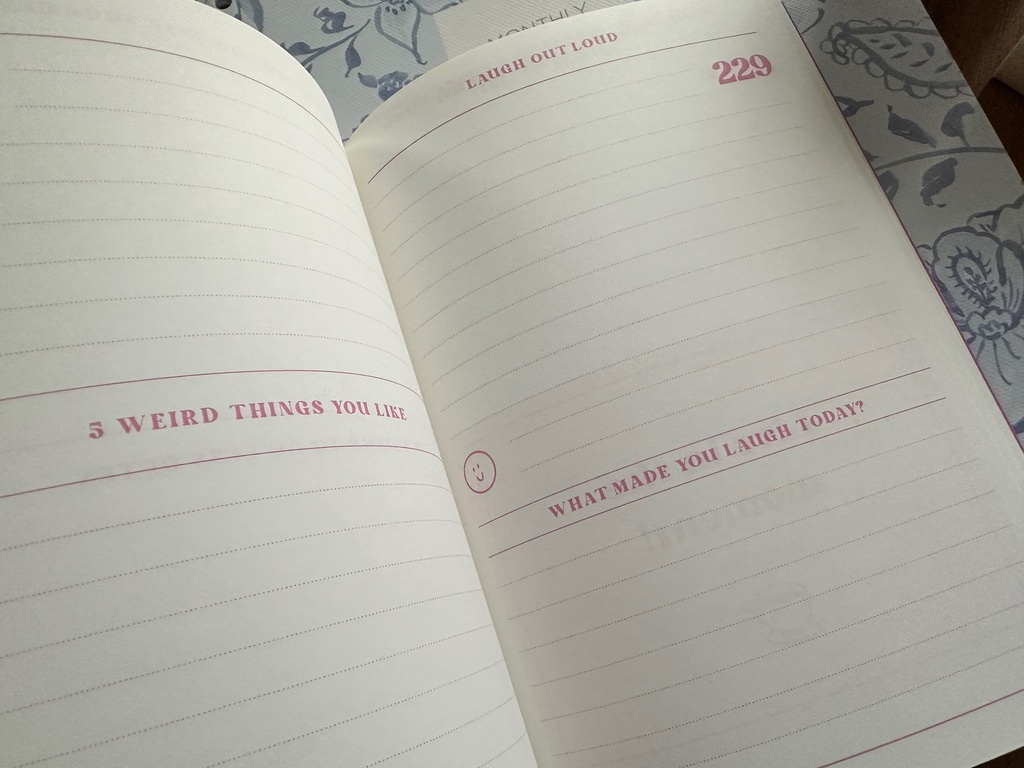 5 WEIRD THINGS YOU LIKE
MONTHLY
LAUGH OUT LOUD
229
WHAT MADE YOU LAUGH TODAY?